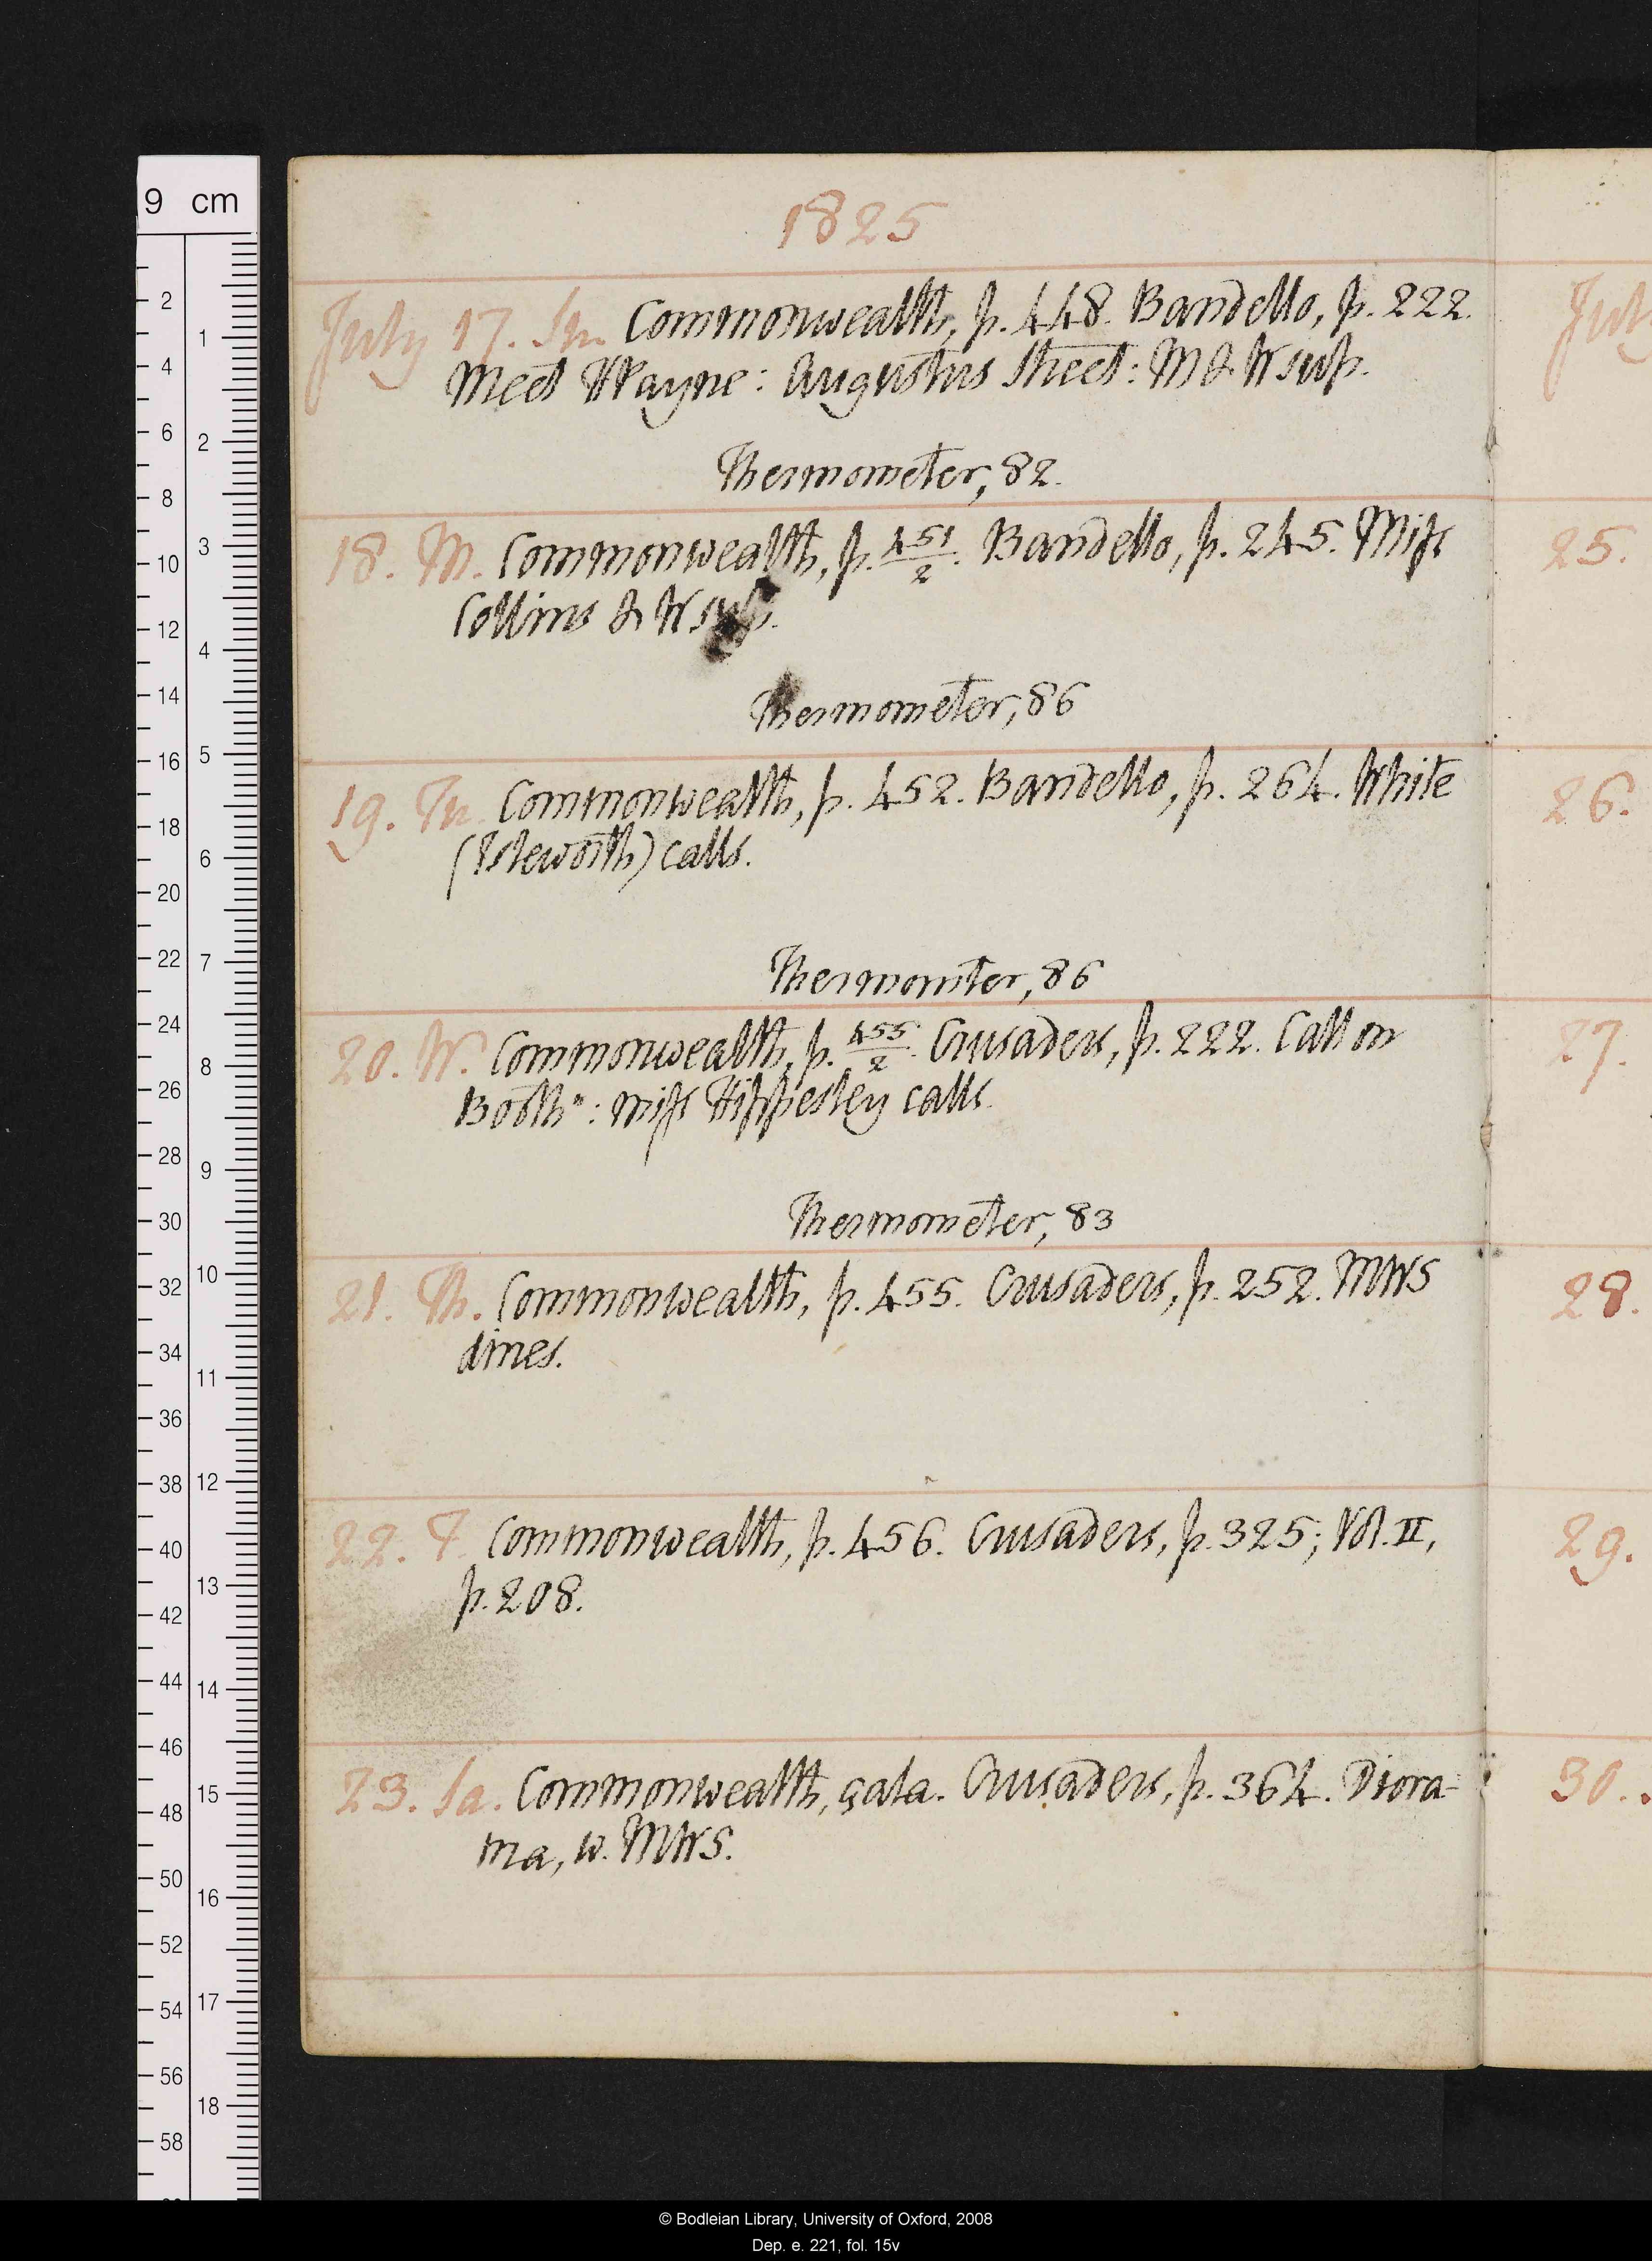 1825
July 17. Su. Commonwealth, p. 448. Bandello, p. 222.
Meet HPayne: Augustus Street: M & W sup.
Thermometer, 82.
18. M. Commonwealth, p. 451/2. Bandello, p. 245. Miss
Collins & W sup.
Thermometer, 86
19. Tu. Commonwealth, p. 452. Bandello, p. 264. White
(Isleworth) calls.
Thermomter, 86
20. W. Commonwealth, p. 455/2. Crusaders, p. 222. Call on
Booth n: Miss Hippesley calls.
Thermometer, 83
21. Th. Commonwealth, p. 455. Crusaders, p. 252. MWS
dines.
22. F. Commonwealth, p. 456. Crusaders, p. 325; Vol. II,
p. 208.
23. Sa. Commonwealth, çala. Crusaders, p. 364. Diora-
ma, w. MWS.
July
25.
26.
27.
28.
29.
30.
9 cm
2
4
6
8
10
12
14
16
18
20
22
24
26
28
30
32
34
36
38
40
42
44
46
48
50
52
54
56
58
1
2
3
4
5
6
7
8
9
10
11
12
13
14
15
16
17
18
© Bodleian Library, University of Oxford, 2008
Dep. e. 221, fol. 15v